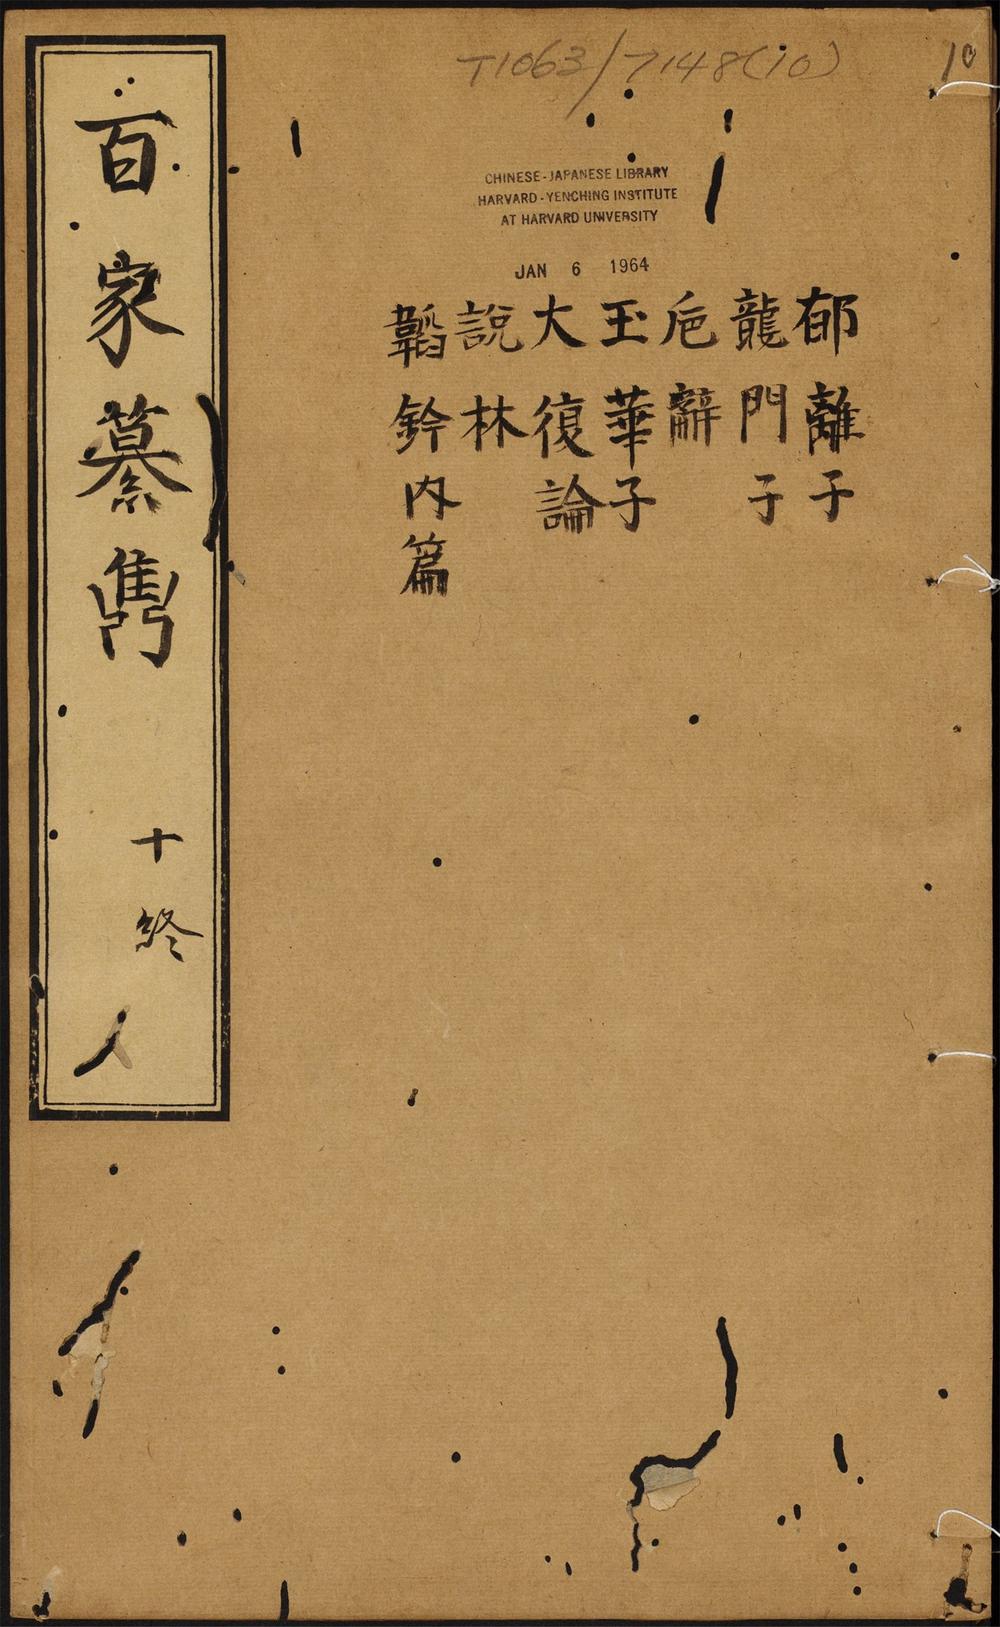 T1063/7148(10)
10
CHINESE-JAPANESE LIBRARY
HARVARD-YENCHING INSTITUTE
AT HARVARD UNIVERSITY
JAN 6 1964
郁離子
龍門子
巵辭
玉華子
大復論
說林
韜鈐內篇
百家纂雋
十終